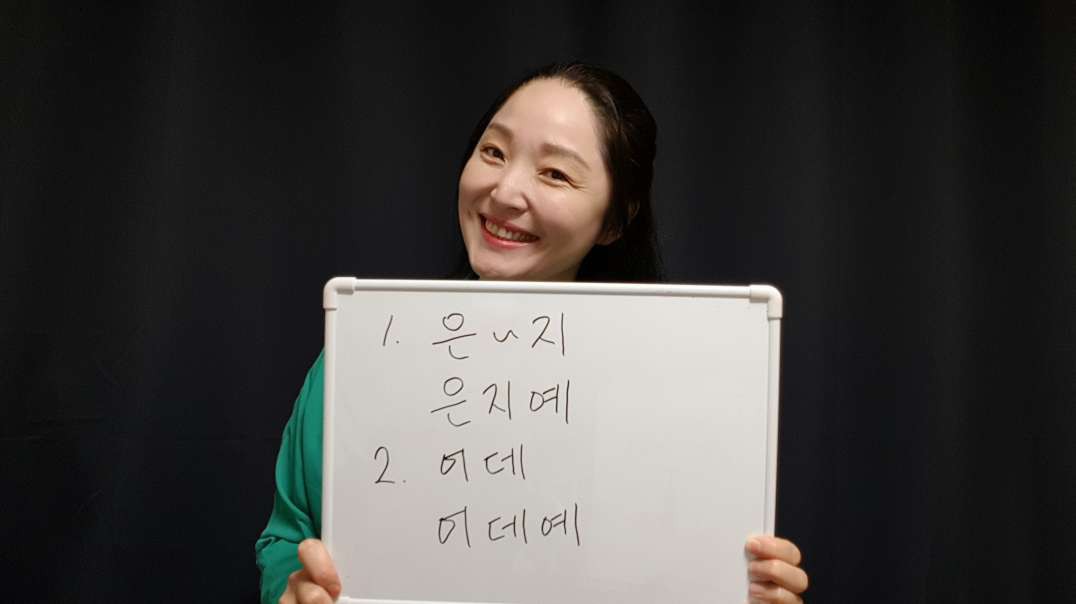 1. 은~지
은지예
2. 어데
어데예